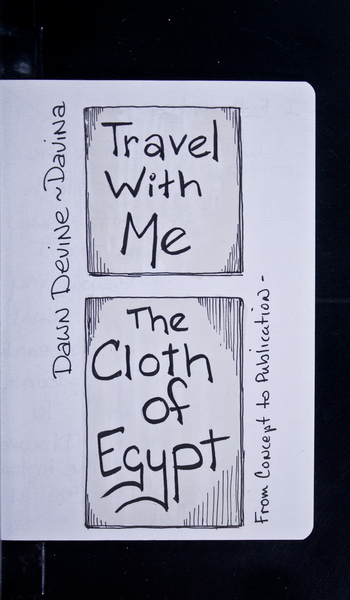 Dawn Devine ~ Davina
Travel
With
Me
The
Cloth
of
Egypt
From Concept to Publication -